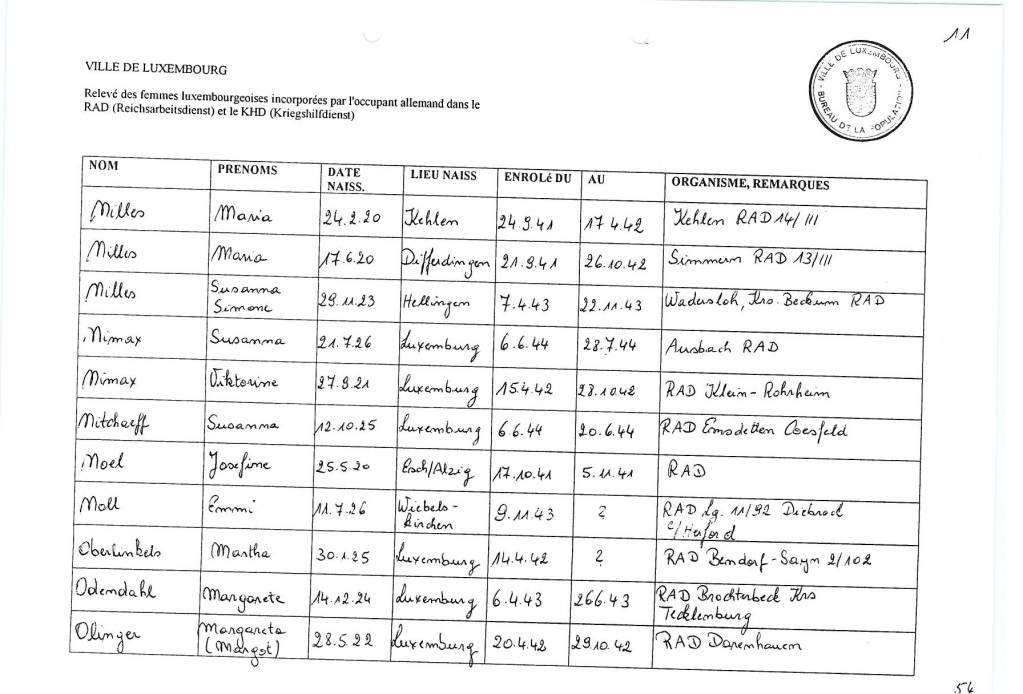 11
VILLE DE LUXEMBOURG
VILLE DE LUXEMBOURG
BUREAU DE LA POPULATION
Relevé des femmes luxembourgeoises incorporées par l'occupant allemand dans le
RAD (Reichsarbeitsdienst) et le KHD (Kriegshilfdienst)
NOM PRENOMS DATE NAISS. LIEU NAISS ENROLé DU AU ORGANISME, REMARQUES
Milles Maria 24.2.20 Kehlen 24.9.41 17 4.42 Kehlen RAD 14/III
Milles Maria 17.6.20 Differdingen 21.9.41 26.10.42 Simmern RAD 13/III
Milles Susanna Simone 29.11.23 Hellingen 7.4.43 22.11.43 Wadersloh, Krs. Beckum RAD
Nimax Susanna 21.7.26 Luxemburg 6.6.44 28.7.44 Ausbach RAD
Nimax Viktorine 27.9.21 Luxemburg 15.4.42 28.10.42 RAD Klein-Rohrheim
Susanna 12.10.25 Luxemburg 6 6.44 20.6.44 RAD Emsdetten Coesfeld
Noel Josefine 25.5.20 Esch/Alzig 17.10.41 5.11.41 RAD
Noll Emmi 11.7.26 Wiebels-
kirchen 9.11.43 ? RAD Lg. 11/92
c/Herford
Oberlinkels Martha 30.1.25 Luxemburg 14.4.42 ? RAD Bendorf-Sayn 2/102
Odendahl Margarete 14.12.24 Luxemburg 6.4.43 26.6.43 RAD Brochterbeck Krs
Tecklenburg
Olinger Margareta
(Margot) 28.5.22 Luxemburg 20.4.42 29.10.42 RAD